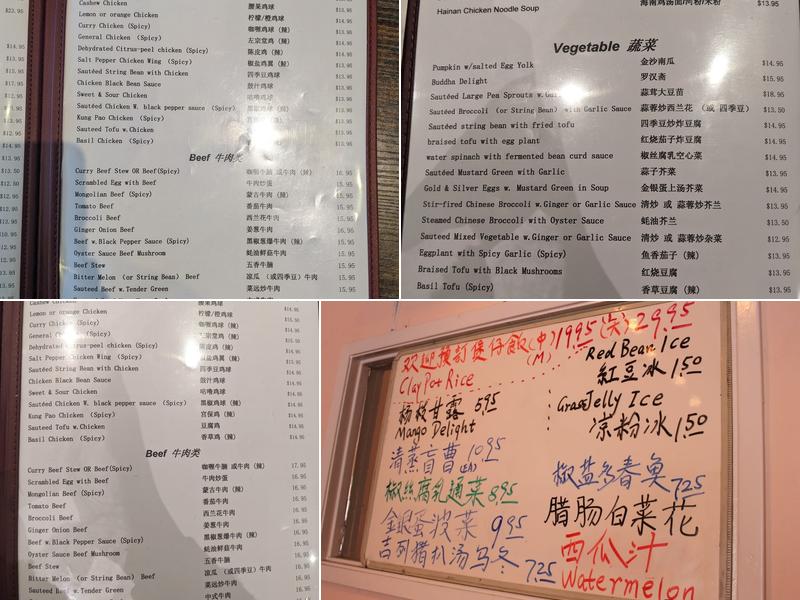 Lemon or orange Chicken 柠檬/橙鸡球
Curry Chicken (Spicy) 咖喱鸡球（辣）
General Chicken (Spicy) 左宗堂鸡（辣）
Dehydrated Citrus-peel chicken (Spicy) 陈皮鸡（辣）
Salt Pepper Chicken Wing (Spicy) 椒盐鸡翼（辣）
Sautéed String Bean with Chicken 四季豆鸡球
Chicken Black Bean Sauce 鼓汁鸡球
Sweet & Sour Chicken 咕噜鸡球
Sautéed Chicken W. black pepper sauce (Spicy)
Kung Pao Chicken (Spicy)
Sauteed Tofu w.Chicken
Basil Chicken (Spicy)
Beef 牛肉类
Curry Beef Stew OR Beef(Spicy) 咖喱牛腩 或牛肉（辣） 16.95
Scrambled Egg with Beef 牛肉炒蛋 15.95
Mongolian Beef (Spicy) 蒙古牛肉（辣） 15.95
Tomato Beef 番茄牛肉 15.95
Broccoli Beef 西兰花牛肉 15.95
Ginger Onion Beef 姜葱牛肉 16.95
Beef w.Black Pepper Sauce (Spicy) 黑椒葱爆牛肉（辣） 15.95
Oyster Sauce Beef Mushroom 蚝油鲜菇牛肉 15.95
Beef Stew 五香牛腩 15.95
Bitter Melon (or String Bean) Beef 凉瓜（或四季豆）牛肉 15.95
Sauteed Beef w.Tender Green 菜远炒牛肉 15.95
Hainan Chicken Noodle Soup $13.95
Vegetable 蔬菜
Pumpkin w/salted Egg Yolk 金沙南瓜 $14.95
Buddha Delight 罗汉斋 $15.95
Sautéed Large Pea Sprouts w.Garlic 蒜茸大豆苗 $18.95
Sautéed Broccoli (or String Bean) with Garlic Sauce 蒜蓉炒西兰花 （或 四季豆） $13.50
Sautéed string bean with fried tofu 四季豆炒炸豆腐 $14.95
braised tofu with egg plant 红烧茄子炸豆腐 $14.95
water spinach with fermented bean curd sauce 椒丝腐乳空心菜 $14.95
Sautéed Mustard Green with Garlic 蒜子芥菜 $13.95
Gold & Silver Eggs w. Mustard Green in Soup 金银蛋上汤芥菜 $14.95
Stir-fired Chinese Broccoli w.Ginger or Garlic Sauce 清炒 或 蒜蓉炒芥兰 $13.95
Steamed Chinese Broccoli with Oyster Sauce 蚝油芥兰 $13.50
Sauteed Mixed Vegetable w.Ginger or Garlic Sauce 清炒 或 蒜蓉炒杂菜 $12.95
Eggplant with Spicy Garlic (Spicy) 鱼香茄子（辣） $13.95
Braised Tofu with Black Mushrooms 红烧豆腐 $13.95
Basil Tofu (Spicy) 香草豆腐（辣） $13.95
Lemon or orange Chicken 柠檬/橙鸡球
Curry Chicken (Spicy) 咖喱鸡球（辣）
General Chicken (Spicy)
Dehydrated Citrus-peel chicken (Spicy) 陈皮鸡（辣）
Salt Pepper Chicken Wing (Spicy) 椒盐鸡翼（辣）
Sautéed String Bean with Chicken 四季豆鸡球
Chicken Black Bean Sauce 鼓汁鸡球
Sweet & Sour Chicken 咕噜鸡球
Sautéed Chicken W. black pepper sauce (Spicy) 黑椒鸡球（辣）
Kung Pao Chicken (Spicy) 宫保鸡（辣）
Sauteed Tofu w.Chicken 豆腐鸡
Basil Chicken (Spicy) 香草鸡（辣）
Beef 牛肉类
Curry Beef Stew OR Beef(Spicy) 咖喱牛腩 或牛肉（辣） 17.95
Scrambled Egg with Beef 牛肉炒蛋 16.95
Mongolian Beef (Spicy) 蒙古牛肉（辣） 16.95
Tomato Beef 番茄牛肉 16.95
Broccoli Beef 西兰花牛肉 16.95
Ginger Onion Beef 姜葱牛肉
Beef w.Black Pepper Sauce (Spicy) 黑椒葱爆牛肉（辣） 16.95
Oyster Sauce Beef Mushroom 蚝油鲜菇牛肉 16.95
Beef Stew 五香牛腩 16.95
Bitter Melon (or String Bean) Beef 凉瓜（或四季豆）牛肉 16.95
Sauteed Beef w.Tender Green 菜远炒牛肉 16.95
欢迎预訂煲仔飯(中)19.95(大)29.95
(M)
Clay Pot Rice
Red Bean Ice
紅豆冰 1.50
杨枝甘露 5.95
Mango Delight
Grass Jelly Ice
凉粉冰 1.50
清蒸盲曹 10.95
椒盐多春鱼 7.25
椒丝腐乳通菜 8.95
腊肠白菜花
金銀蛋波菜 9.95
吉列猪扒汤乌冬 7.25
西瓜汁
Watermelon